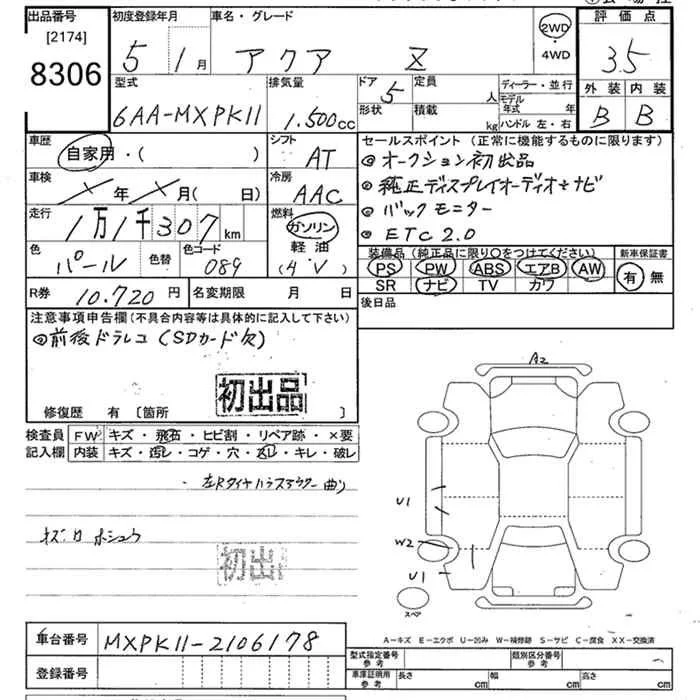 出品番号
[2174]
8306
初度登録年月
5 1月
車名・グレード
アクア Z
2WD
・
4WD
評価点
3.5
型式
6AA-MXPK11
排気量
1.500cc
ドア 5
形状
定員 人
積載 kg
ディーラー・並行
モデル年式 年
ハンドル 左・右
外装 内装
B B
車歴
自家用・( )
シフト
AT
車検
年 月( 日)
冷房
AAC
走行
1万1千307km
燃料
ガソリン
軽油
(4・V)
色
パール
色替
色コード
089
R券 10.720円
名変期限 月 日
セールスポイント (正常に機能するものに限ります)
オークション初出品
純正ディスプレイオーディオナビ
バックモニター
ETC2.0
装備品(純正品に限り○をつけてください)
PS PW ABS エアB AW
SR ナビ TV カワ
新車保証書
有 無
後日品
注意事項申告欄(不具合内容等は具体的に記入して下さい)
前後ドラレコ(SDカード欠)
初出品
修復歴 有 〔箇所 〕
検査員
記入欄
FW キズ・飛石・ヒビ割・リペア跡・×要
内装 キズ・汚レ・コゲ・穴・スレ・キレ・破レ
左Rタイヤハウスアウター曲り
キズ凹ホシュウ
初出
A2
U1
W2
U1
スペア
A-キズ E-エクボ U-凹み W-補修跡 S-サビ C-腐食 XX-交換済
車台番号 MXPK11-2106178
登録番号
型式指定番号
参考
類別区分番号
参考
車庫証明用
参考
長さ cm
幅 cm
高さ cm